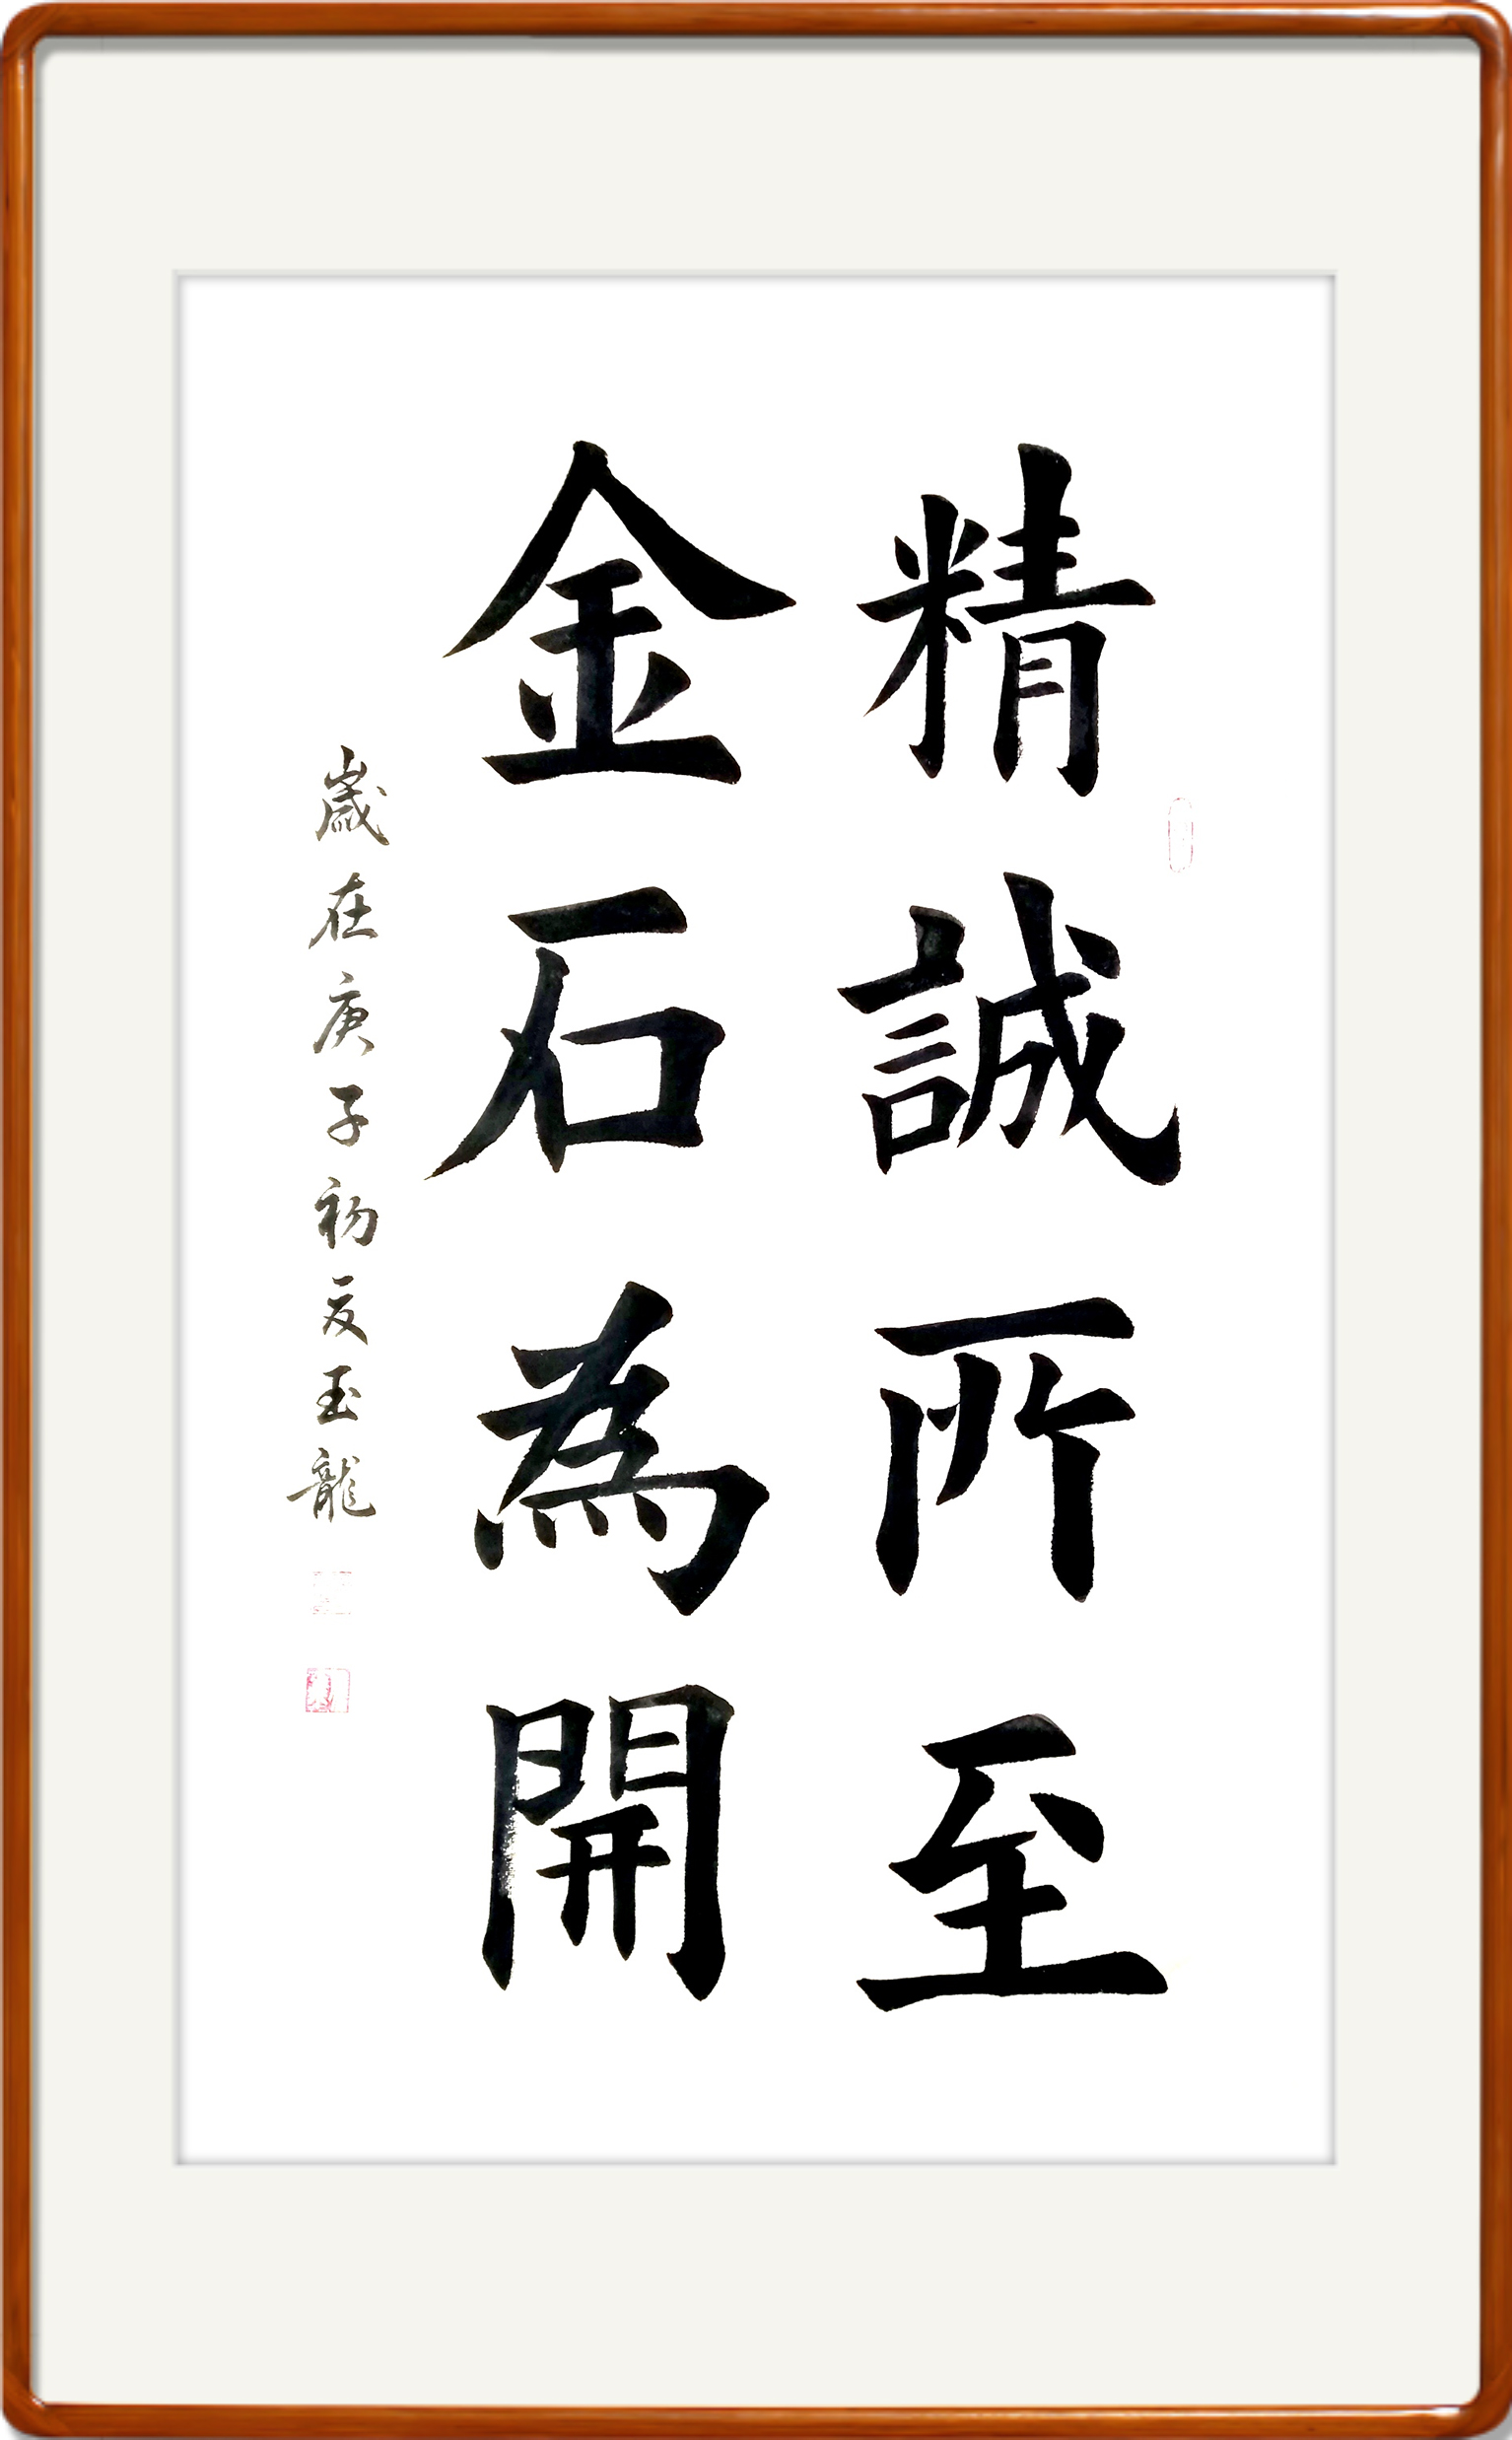 精誠所至
金石為開
歲在庚子初夏玉龍